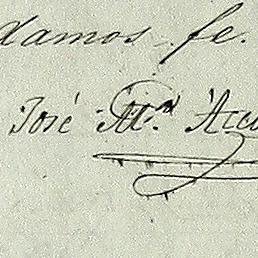 damos fe.
José M.ª